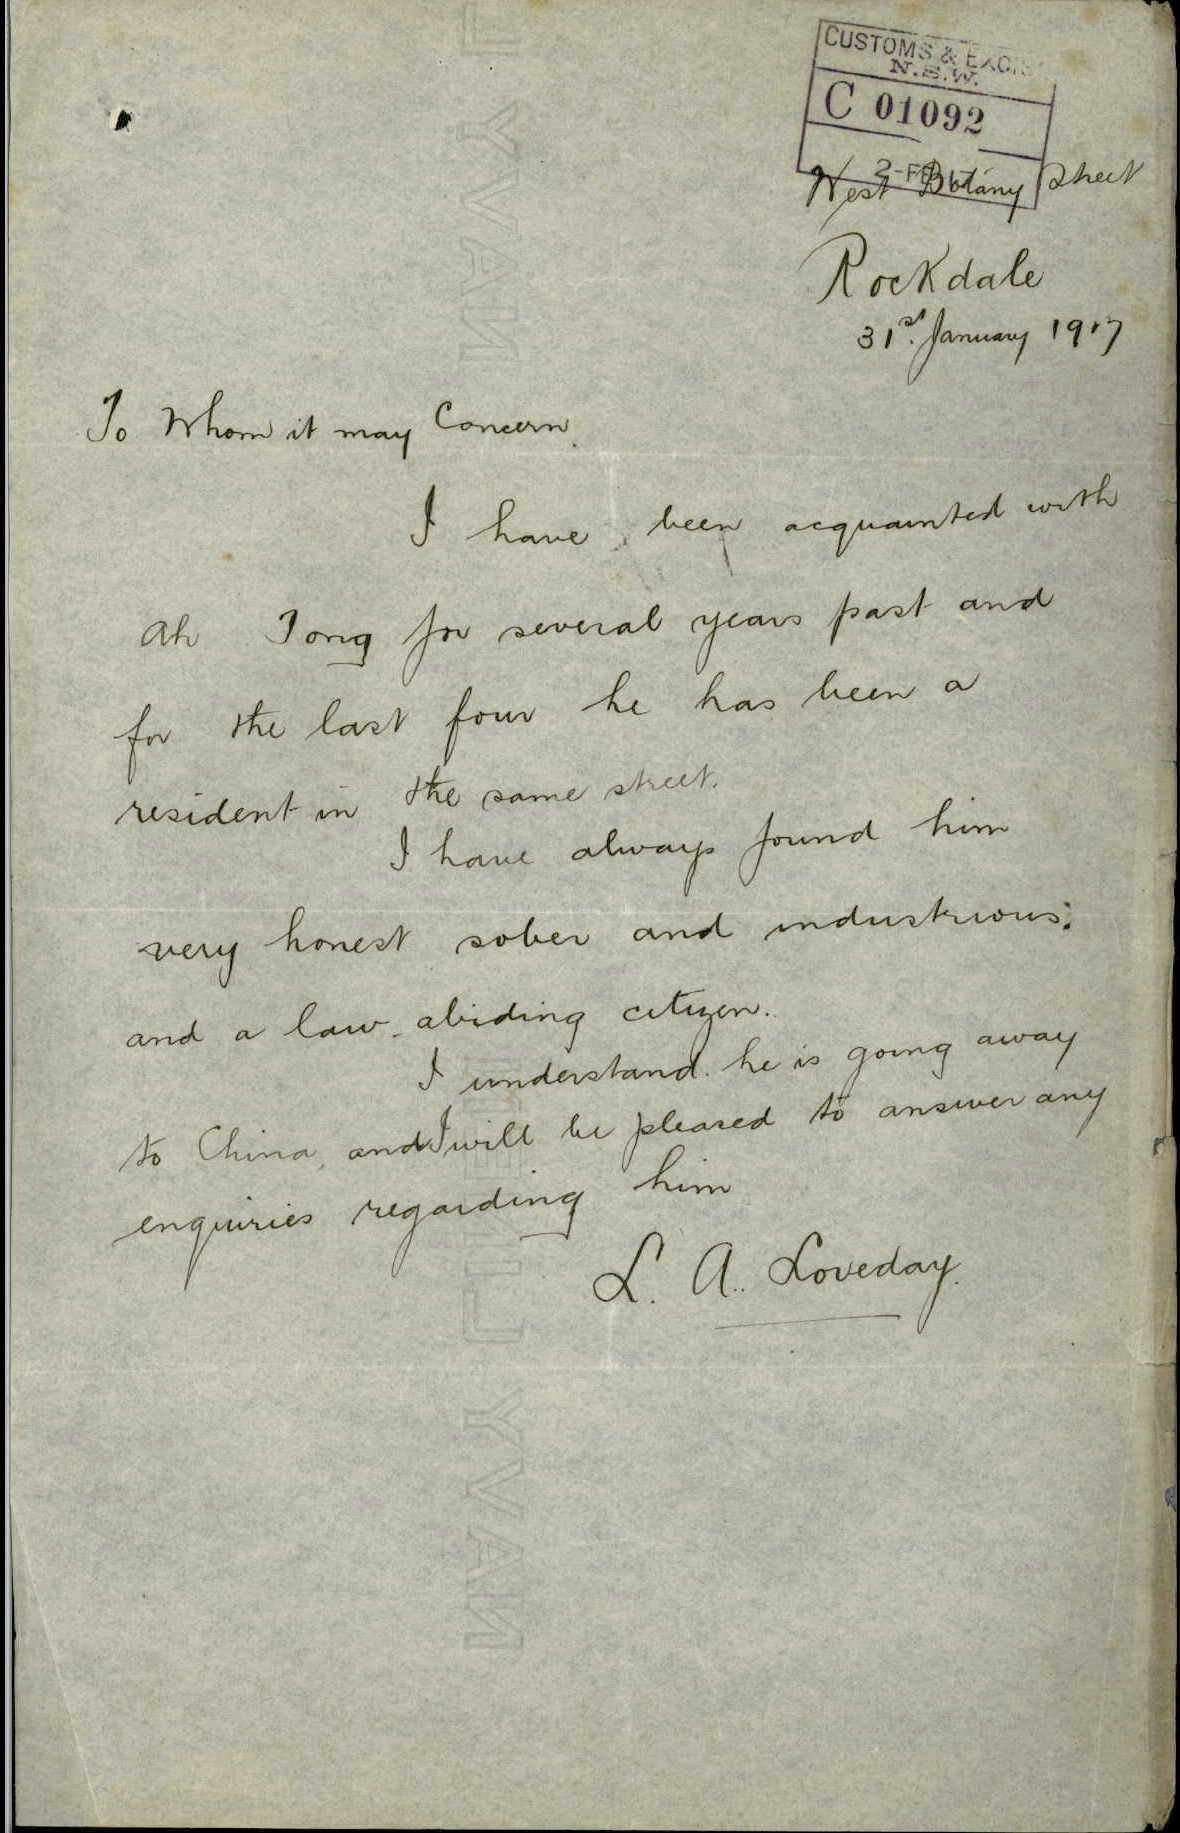 CUSTOMS & EXCIS
N.S.W.
C 01092
2-FE
West Botany Street
Rockdale
31st January 1917
To Whom it may Concern
I have been acquainted with
Ah Tong for several years past and
for the last four he has been a
resident in the same street.
I have always found him
very honest sober and industrious.
and a law-abiding citizen.
I understand he is going away
to China, and I will be pleased to answer any
enquiries regarding him
L. A. Loveday.